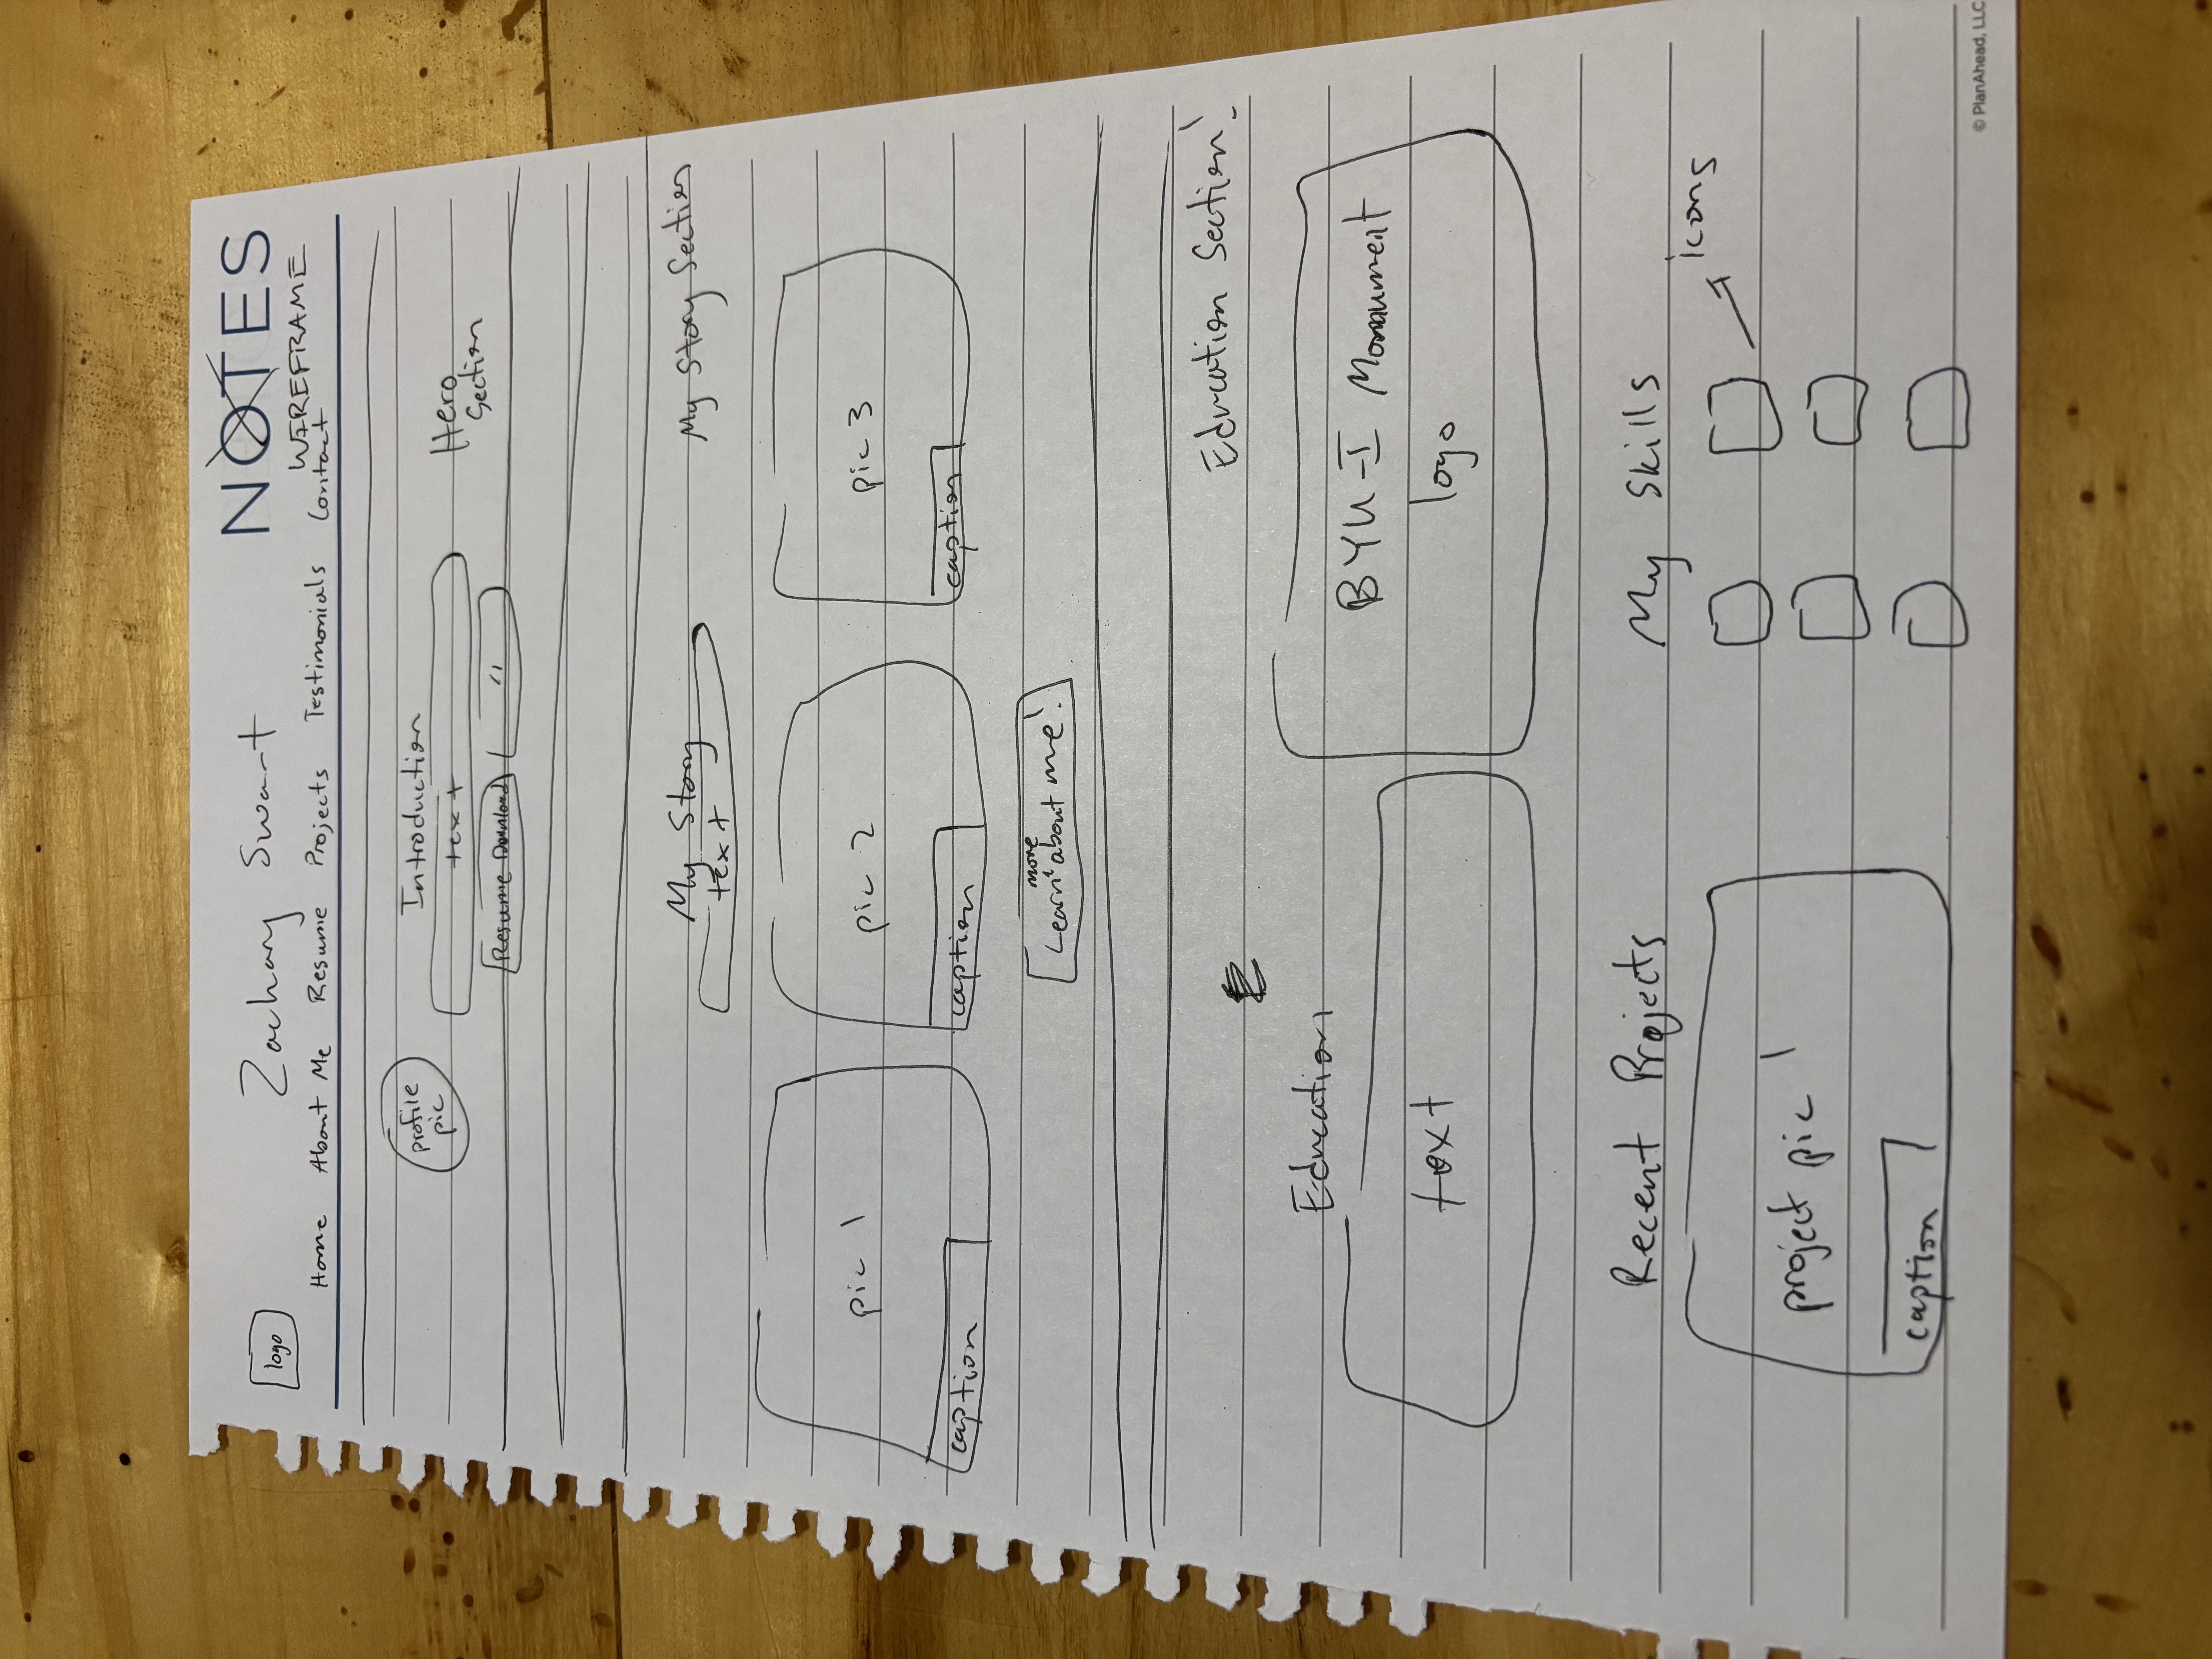 NOTES
WIREFRAME
logo
Zachary Swart
Home About Me Resume Projects Testimonials Contact
profile pic
Introduction
text
Resume Download "
Hero Section
My Story
text
My Story Section
pic 1 pic 2 pic 3
caption caption caption
more
Learn about me!
Education Section!
Education
text
BYU-I Monument
logo
Recent Projects
project pic 1
caption
My Skills
icons
© PlanAhead, LLC